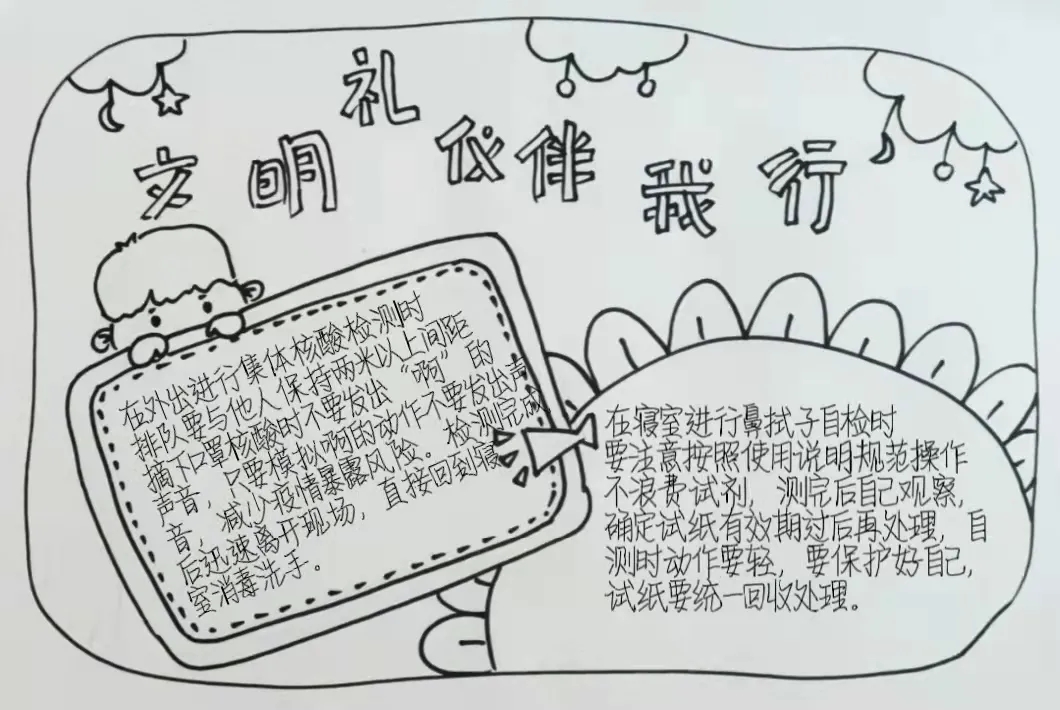 文明礼仪伴我行
在外出进行集体核酸检测时
排队要与他人保持两米以上间距
摘下口罩核酸时不要发出“啊”的
声音，只要模拟啊的动作不要发出声
音，减少疫情暴露风险。检测完成
后迅速离开现场，直接回到寝
室消毒洗手。
在寝室进行鼻拭子自检时
要注意按照使用说明规范操作
不浪费试剂，测完后自己观察，
确定试纸有效期过后再处理，自
测时动作要轻，要保护好自己，
试纸要统一回收处理。